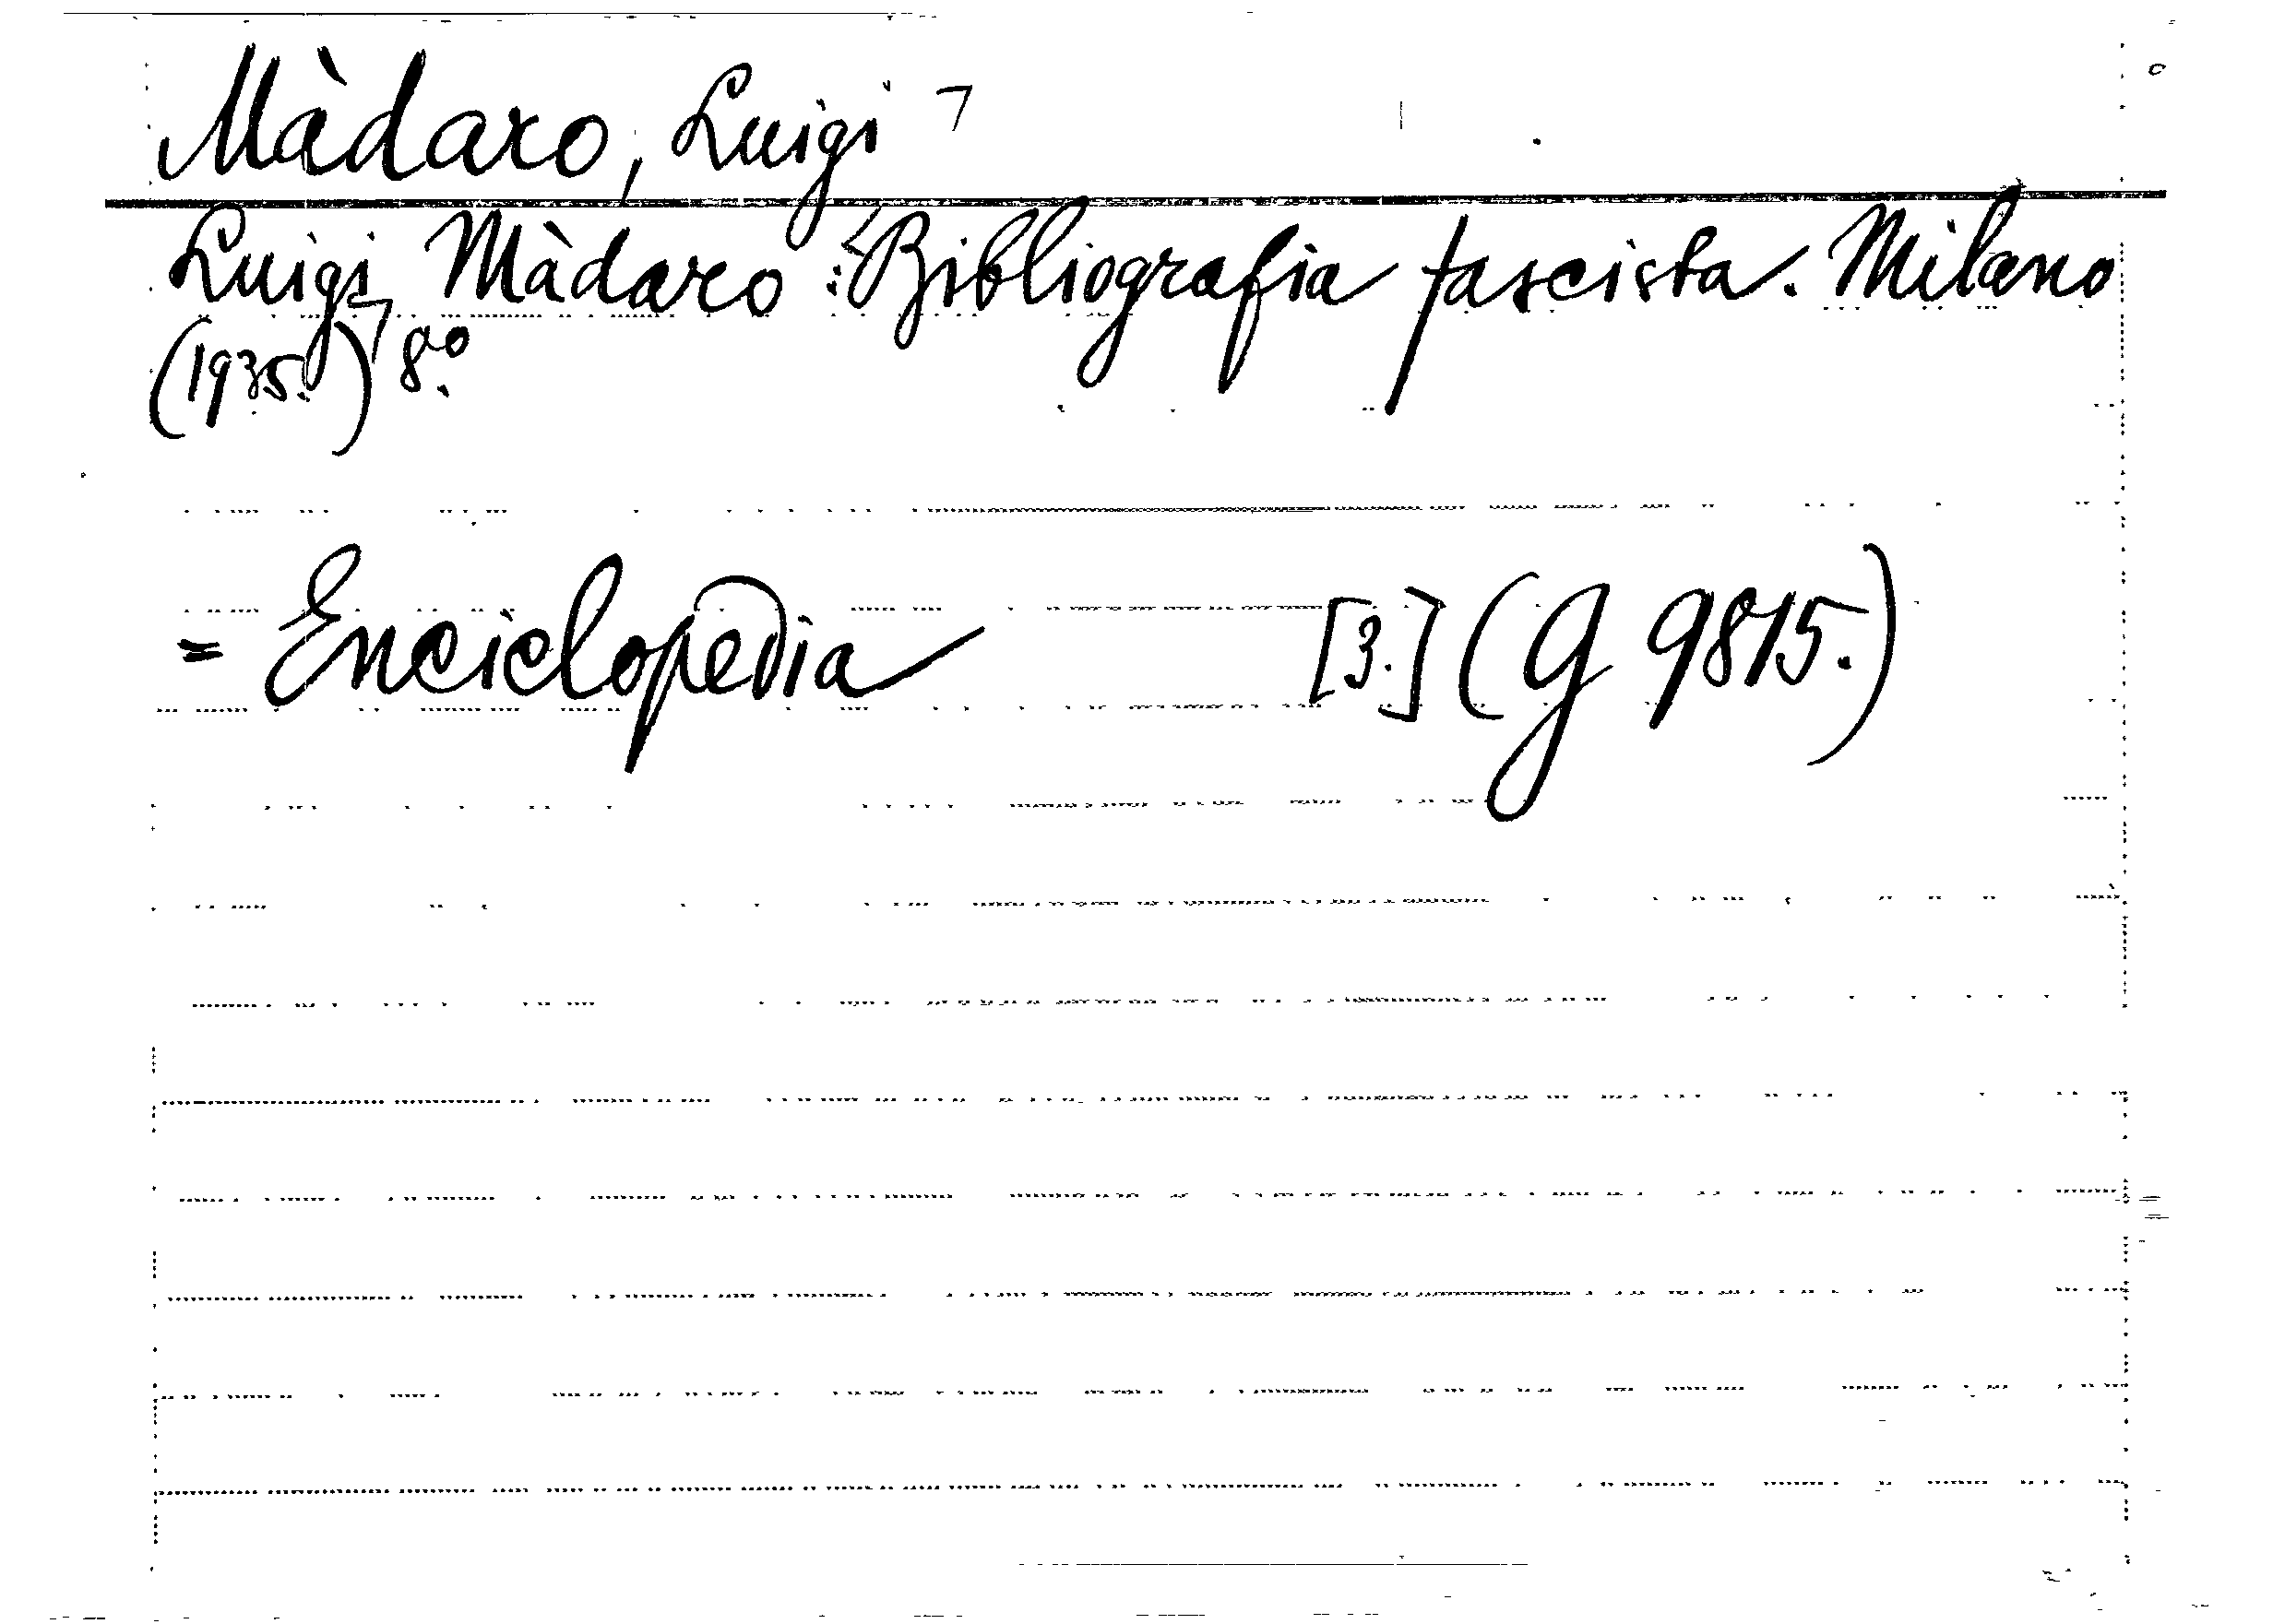 Màdaro, Luigi
Luigi Màdaro: Bibliografia fascista. Milano
(1935.) 8º.
= Enciclopedia [3.] (G 9815.)